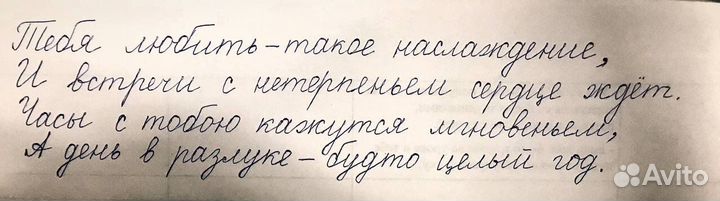 Тебя любить – такое наслаждение,
И встречи с нетерпеньем сердце ждёт.
Часы с тобою кажутся мгновеньем,
А день в разлуке – будто целый год.
Avito